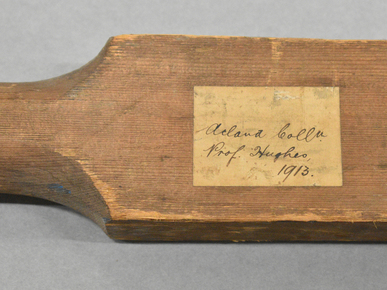 Acland Colln.
Prof. Hughes
1913.